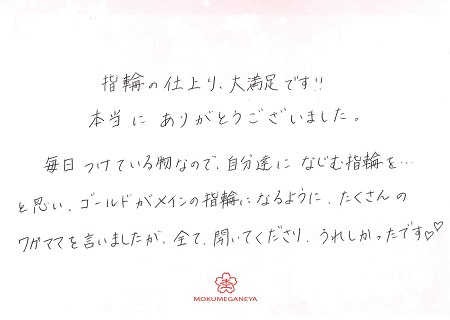 指輪の仕上り、大満足です!!
本当に ありがとうございました。
毎日 つけている物なので、自分達に なじむ指輪を…
と思い、ゴールドがメインの指輪になるように、たくさんの
ワガママを言いましたが、全て、聞いてくださり、うれしかったです♡♡
MOKUMEGANEYA